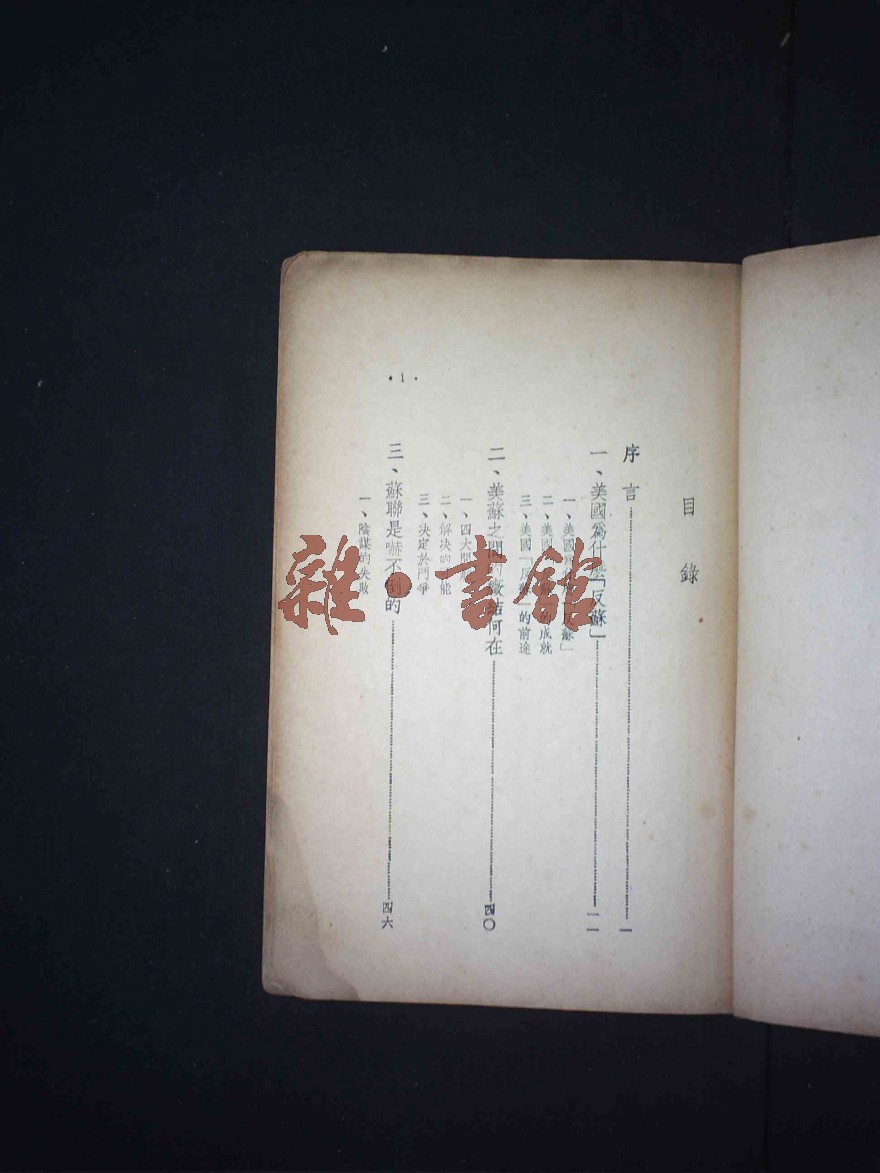 目錄
序言一
一、美國爲什麽「反蘇」一一
一、美國「反蘇」
二、美國成就
三、美國「」的前途
二、美蘇之間的癥結何在四〇
一、四大
二、解決的能
三、決定於鬥爭
三、蘇聯是嚇不倒的四六
一、陰謀的失敗
•1•
雜•書館